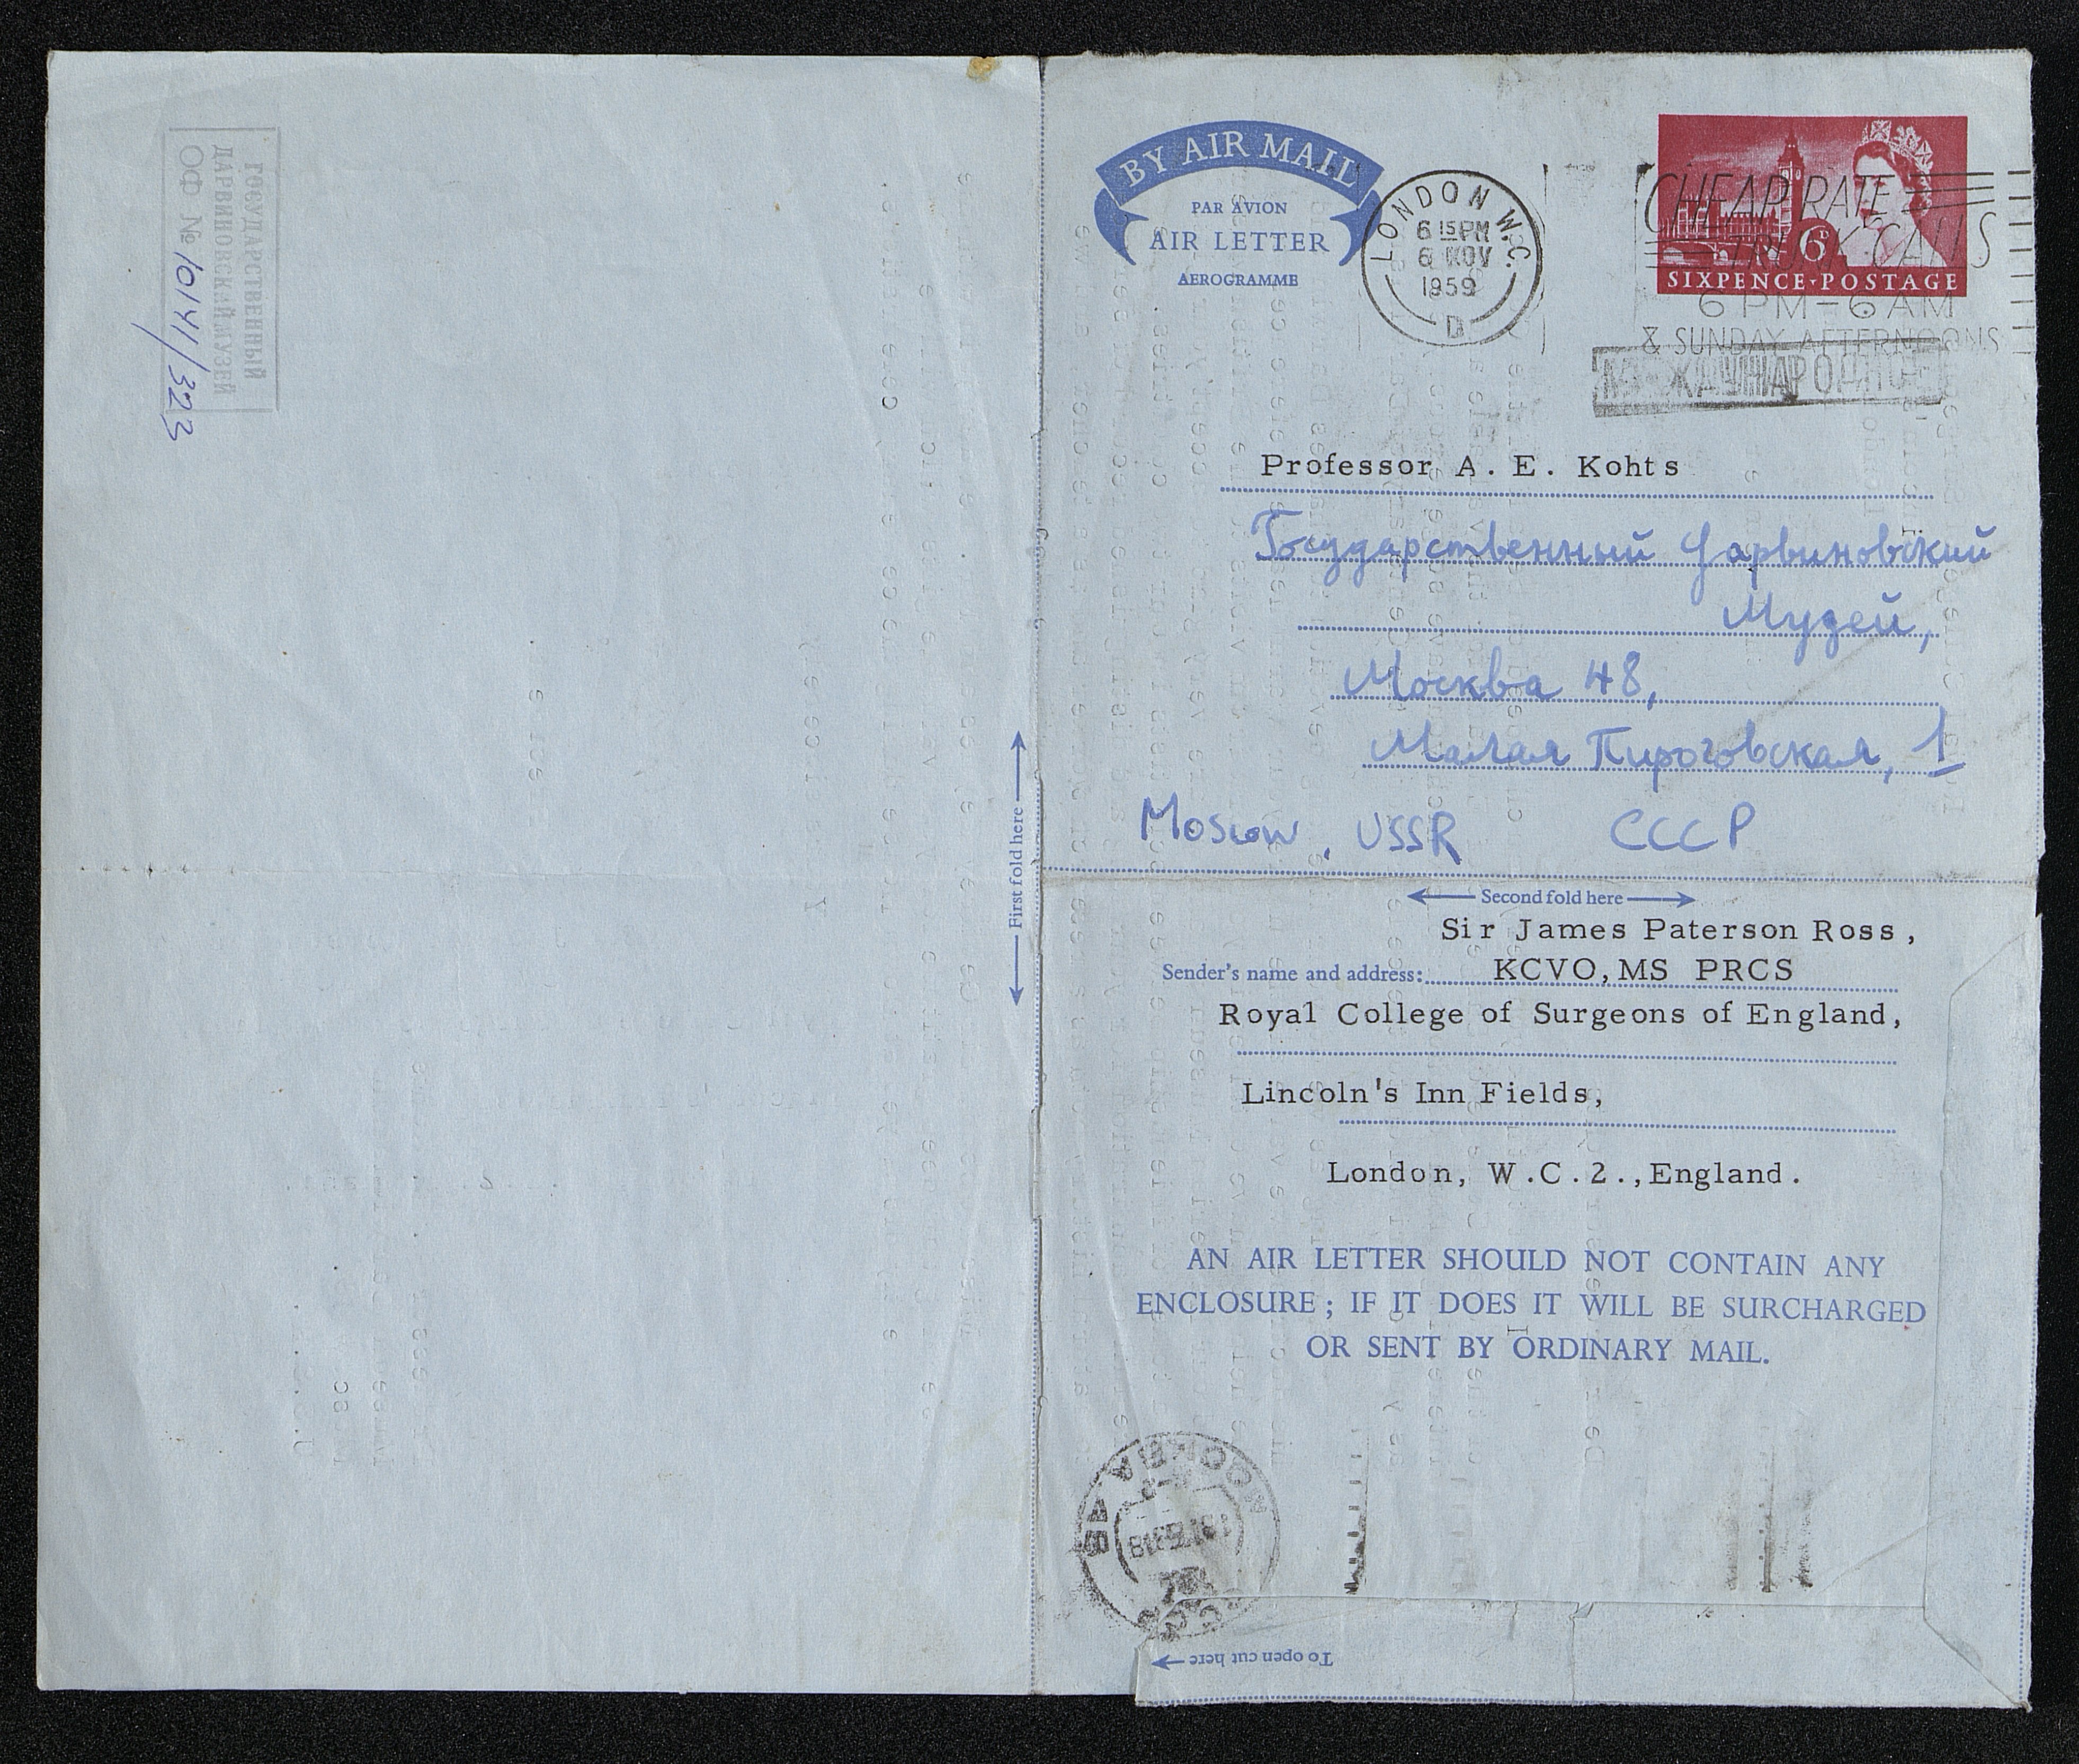 ГОСУДАРСТВЕННЫЙ
ДАРВИНОВСКИЙ МУЗЕЙ
ОФ № 10141/323
BY AIR MAIL
PAR AVION
AIR LETTER
AEROGRAMME
LONDON W.C.
6 15 PM
6 NOV
1959
D
CHEAP RATE
TRUNK CALLS
6 PM-6 AM
& SUNDAY AFTERNOONS
6D
SIXPENCE·POSTAGE
МЕЖДУНАРОДНОЕ
Professor A. E. Kohts
Государственный Дарвиновский
Музей,
Москва 48,
Малая Пироговская, 1
Moscow, USSR СССР
First fold here
Second fold here
Sir James Paterson Ross,
Sender's name and address: KCVO, MS PRCS
Royal College of Surgeons of England,
Lincoln's Inn Fields,
London, W.C.2., England.
AN AIR LETTER SHOULD NOT CONTAIN ANY
ENCLOSURE ; IF IT DOES IT WILL BE SURCHARGED
OR SENT BY ORDINARY MAIL.
МОСКВА
To open cut here